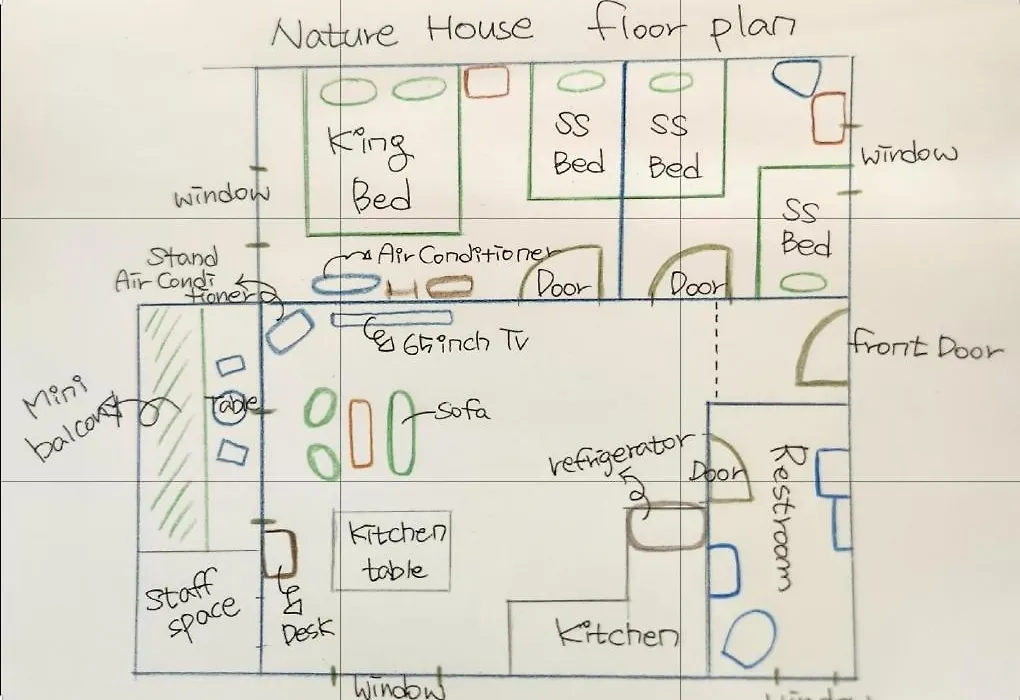 Nature House floor plan
King
Bed
SS
Bed
SS
Bed
window
window
SS
Bed
Stand
Air Condi
tioner
Air Conditioner
Door
Door
65inch Tv
front Door
Mini
balcony
Table
Sofa
refrigerator
Door
Restroom
Kitchen
table
Staff
space
Desk
Kitchen
Window
Window